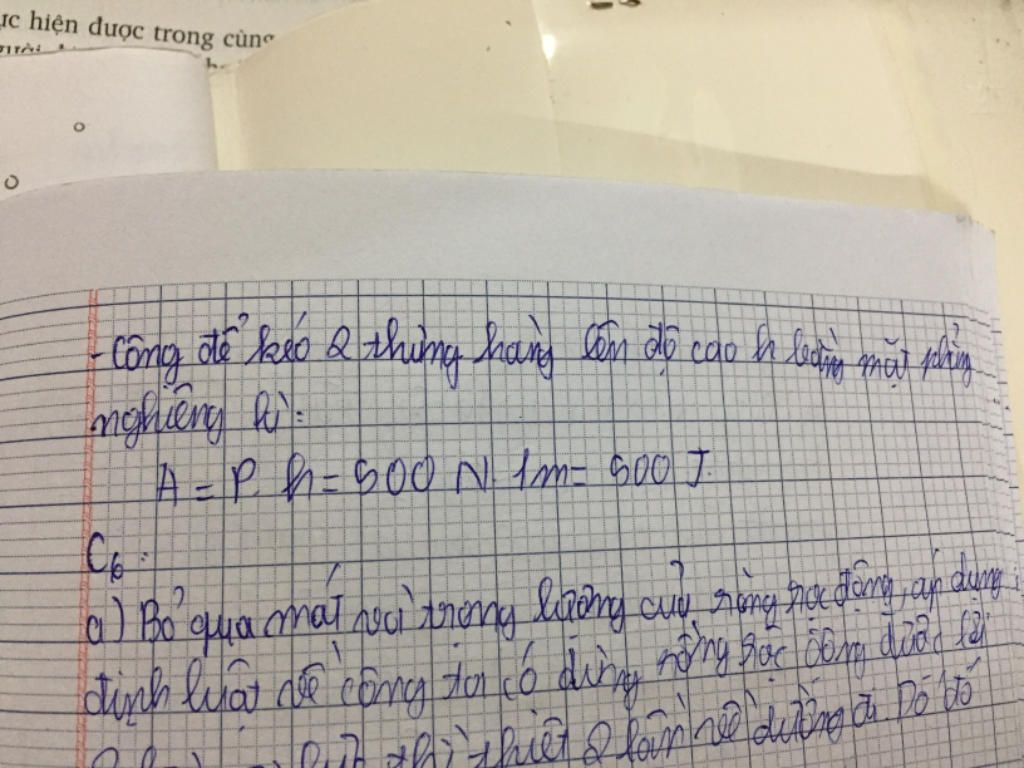 ực hiện được trong cùng
- Công để kéo 2 thùng hàng lên độ cao h bằng mặt phẳng
nghiêng là:
A = P. h = 500 N. 1m = 500 J.
C6:
a) Bỏ qua mát trọng lượng của ròng rọc động, áp dụng
định luật về công ta có dùng ròng rọc động được lợi
thì thiệt 2 lần về đường đi. Do đó